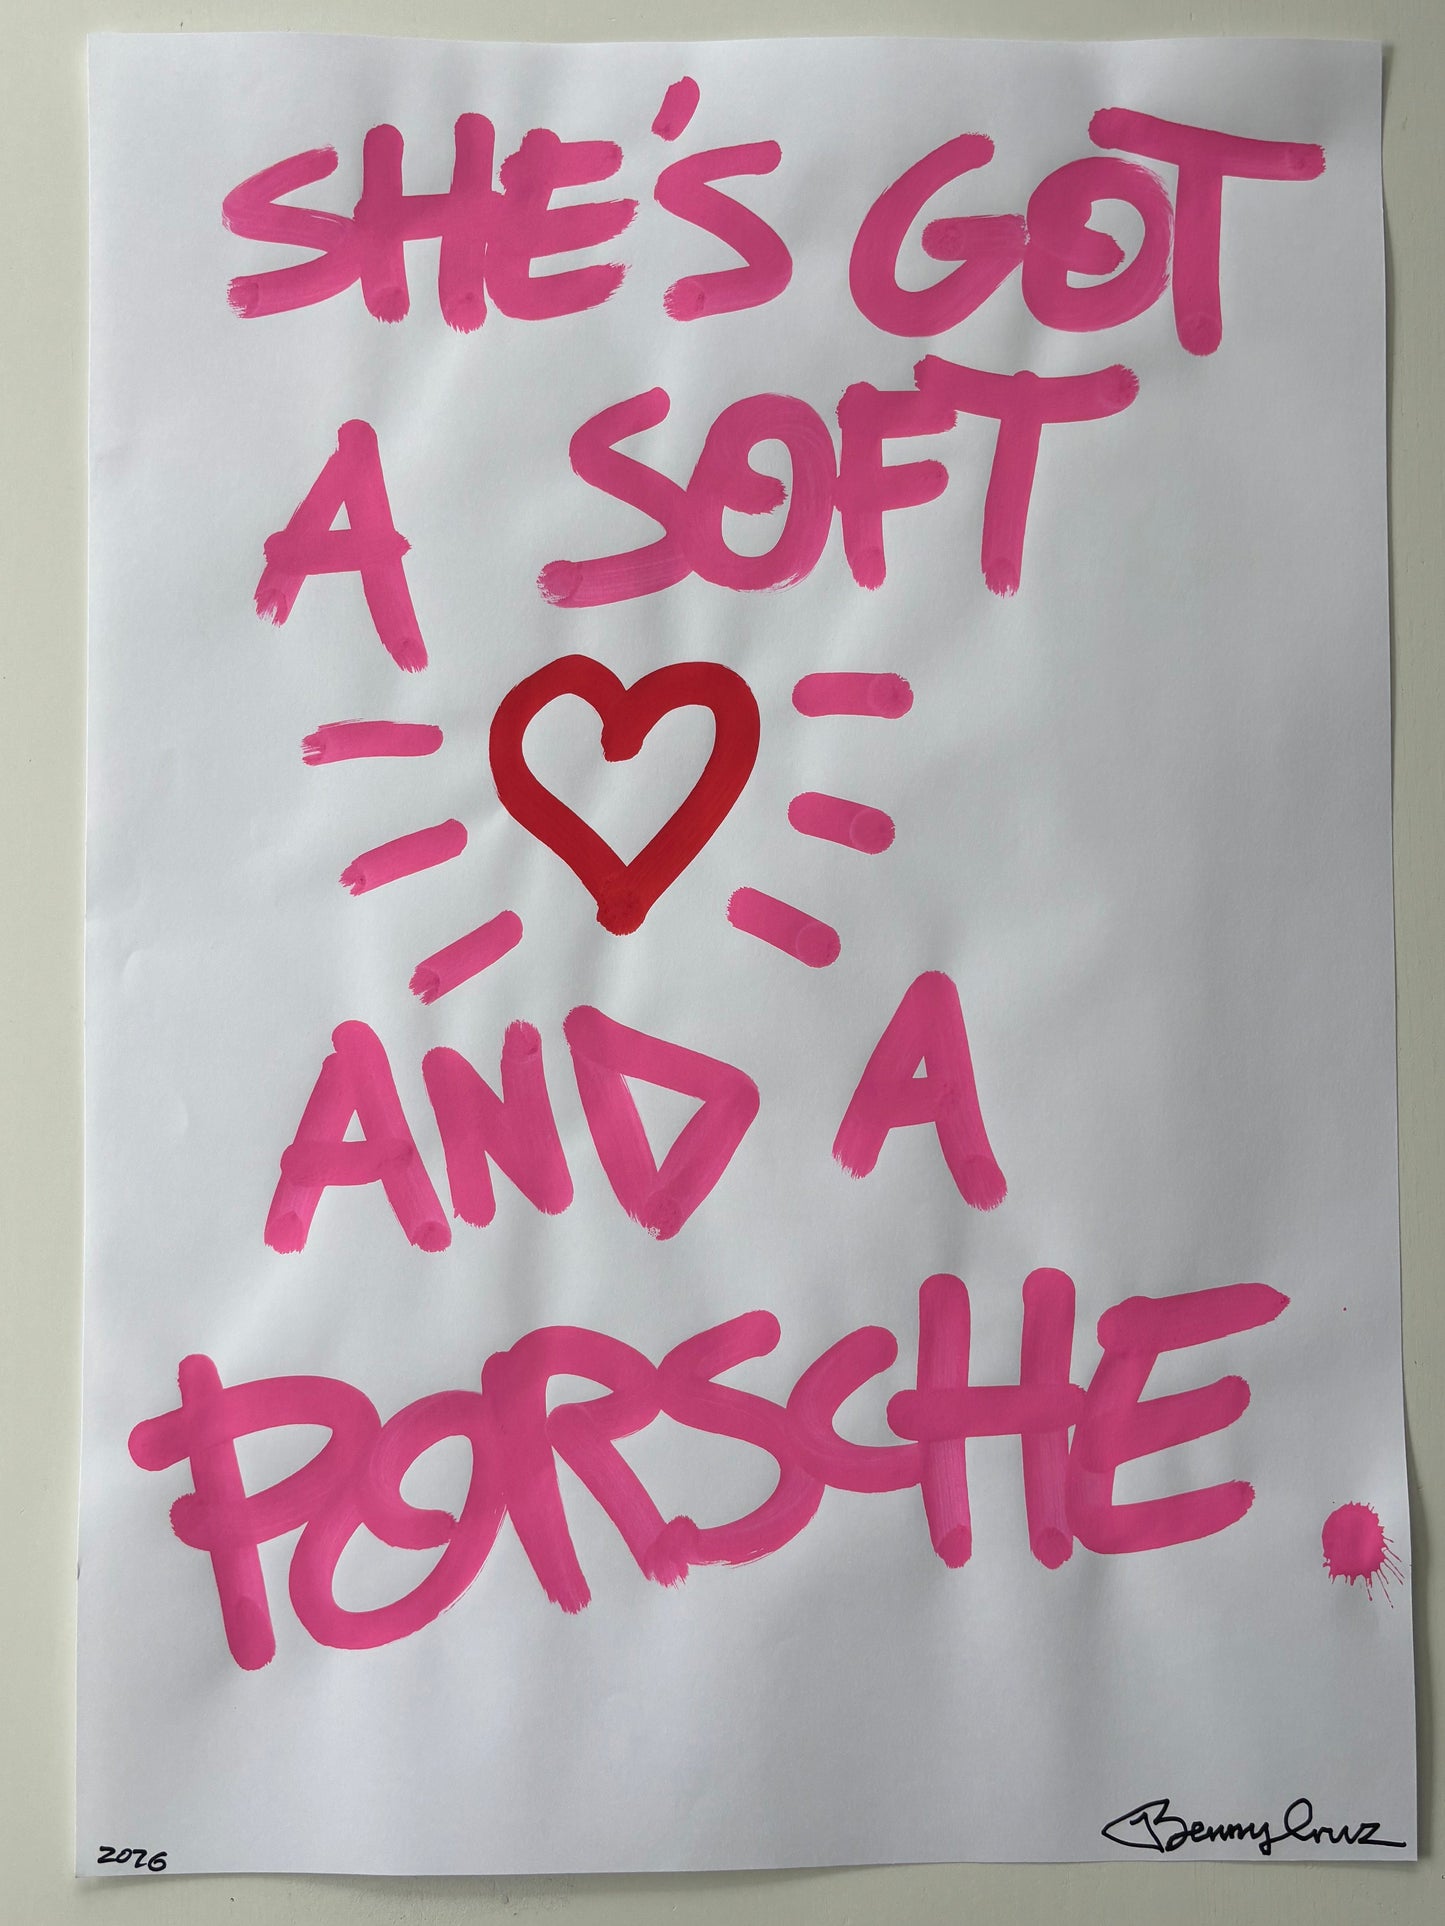 SHE'S GOT
A SOFT
AND A
PORSCHE.
2026
Benny Cruz